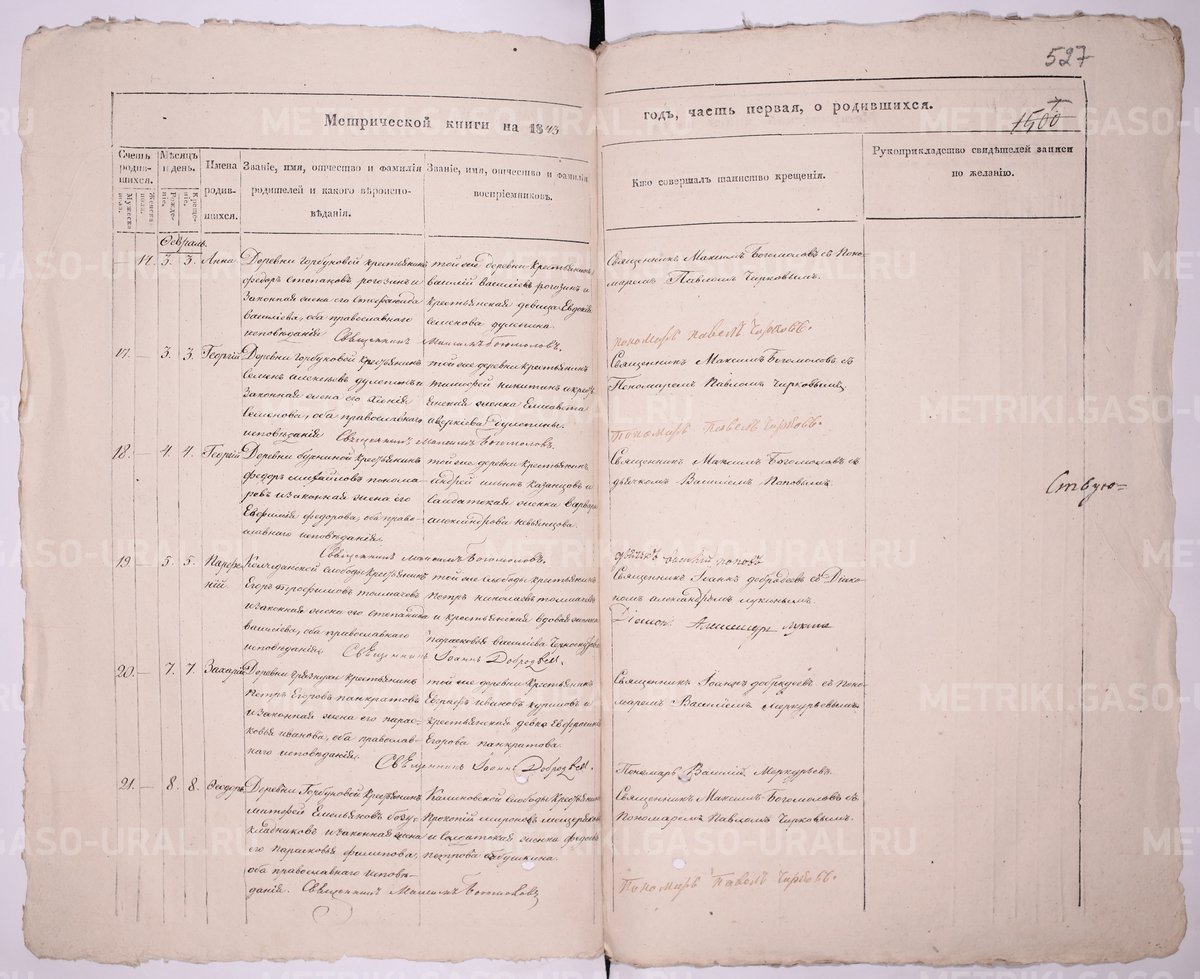 527
Метрической книги на 1843
годъ, часть первая, о родившихся.
1500
Счетъ родив-шихся.
Мужеска пола.
Женска пола.
Мѣсяцъ и день.
Рожде-нія.
Креще-нія.
Имена родив-шихся.
Званіе, имя, отчество и фамилія родителей и какого вѣроиспо-вѣданія.
Званіе, имя, отчество и фамилія воспріемниковъ.
Кто совершалъ таинство крещенія.
Рукоприкладство свидѣтелей записи по желанію.
Февраль
— 14. 3. 3. Анна
Деревни Горбуковой крестьянинъ
Федоръ Степановъ рогозинъ и
Законная жена его Степанида
васильева, оба православнаго
исповѣданія Священникъ Максимъ Богомоловъ.
той же деревни крестьянинъ
василій васильевъ рогозинъ и
крестьянская девица Евдокія
Семенова
Священникъ Максимъ Богомоловъ съ Поно-
маремъ Павломъ Чирковымъ.
пономарь павелъ Чирковъ.
17. — 3. 3. Георгій
Деревни Горбуковой крестьянинъ
Семенъ алексѣевъ
Законная жена его Хіонія
Семенова, оба православнаго
исповѣданія Священникъ Максимъ Богомоловъ.
той же деревни крестьянинъ
тимофей никитинъ и крестьянская женка Елисавета
аверкіева
Священникъ Максимъ Богомоловъ съ
Пономаремъ Павломъ Чирковымъ
Пономарь Павелъ Чирковъ.
18. — 4. 4. Георгій
Деревни крестьянинъ
Федоръ михайловъ понома-
ровъ и законная жена его
Евфимія федорова, оба право-
славнаго исповѣданія.
Священникъ Максимъ Богомоловъ.
той же деревни крестьянинъ
андрей ильинъ казанцовъ и
Салдатская женка Варвара
александрова невьянцова.
Священникъ Максимъ Богомоловъ съ
дьячкомъ Василіемъ Поповымъ.
дьячекъ василій поповъ
Ствую=
19. — 5. 5. Парфе-
ній.
Колчеданской слободы крестьянинъ
Егоръ трофимовъ толмачевъ
и законная жена его степанида
васильева, оба православнаго
исповѣданія Священникъ Іоаннъ Добродѣевъ.
той же слободы крестьянинъ
Петръ николаевъ толмачевъ
и крестьянская вдовая женка
парасковья васильева
Священникъ Іоаннъ добродеевъ съ Діако-
номъ александромъ лукинымъ
Діаконъ Александръ Лукинъ
20. — 7. 7. Захарій
Деревни крестьянинъ
Петръ Егоровъ панкратовъ
и законная жена его парас-
ковья иванова, оба православ-
наго исповѣданія.
Священникъ Іоаннъ Добродѣевъ.
той же деревни крестьянинъ
Евграфъ ивановъ и
крестьянская девка Евфросинія
Егорова панкратова.
Священникъ Іоаннъ добродеевъ съ Поно-
маремъ Василіемъ Меркурьевымъ.
Пономарь Василій Меркурьевъ.
21. — 8. 8. Феодоръ
Деревни Горбуковой крестьянинъ
матфей Емельяновъ
и законная жена
его парасковья филипова,
оба православнаго исповѣ-
данія. Священникъ Максимъ Богомоловъ
слободы крестьянинъ
Прокопій мироновъ
и Солдатская женка
петрова бабушкина.
Священникъ Максимъ Богомоловъ съ
Пономаремъ Павломъ Чирковымъ.
Пономарь Павелъ Чирковъ.
METRIKI.GASO-URAL.RU